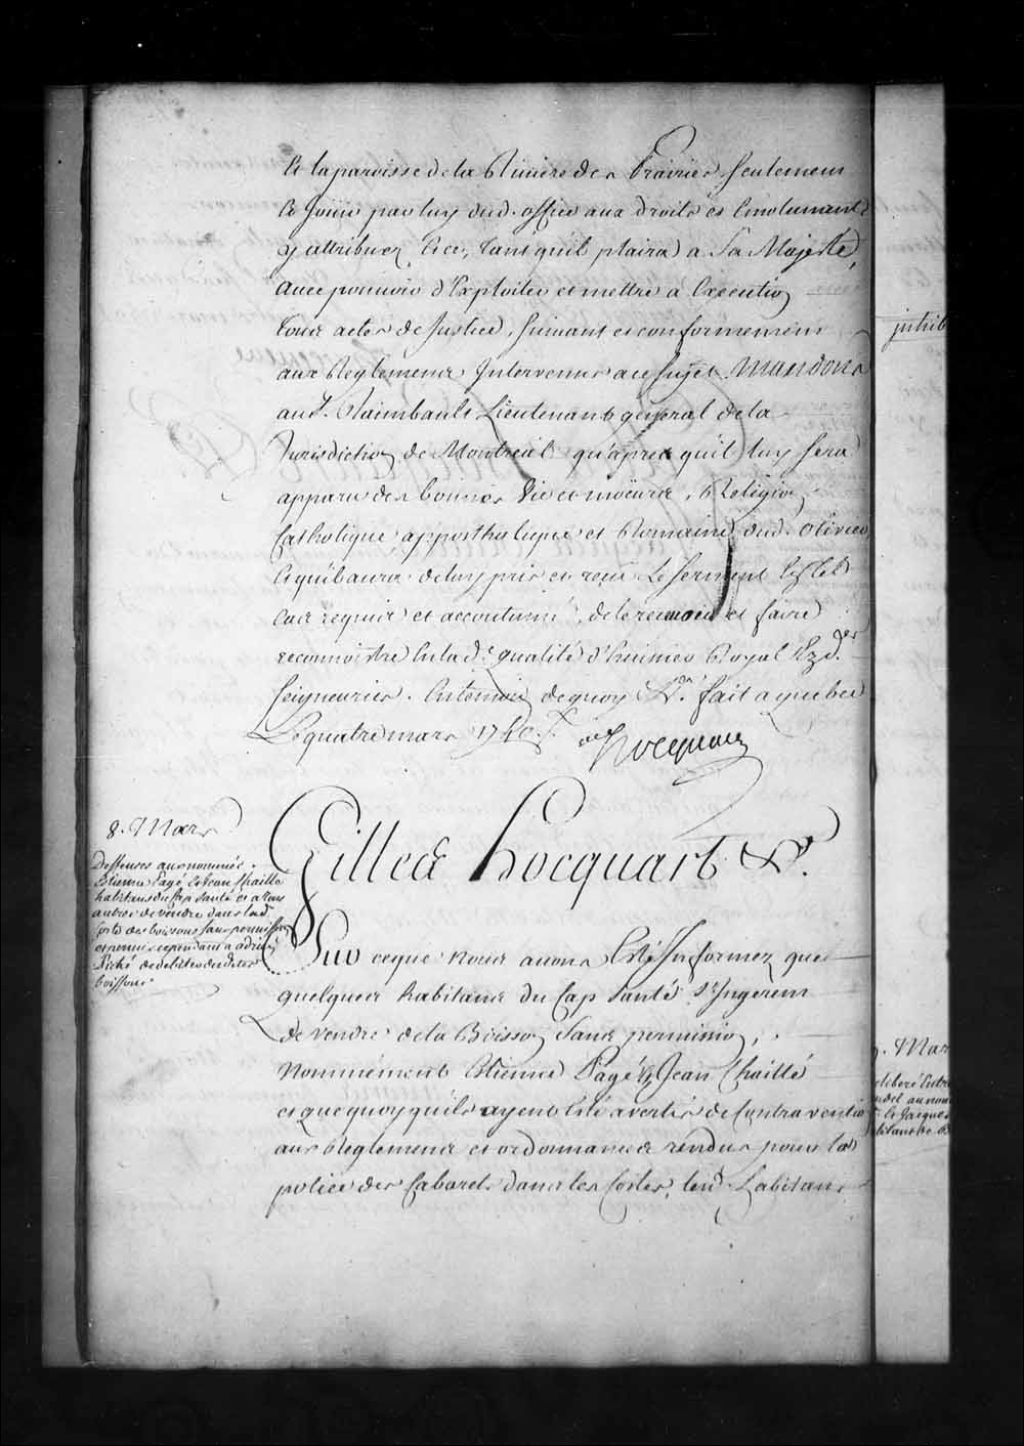 et la paroisse de la Riviere des Prairies seulement
Et Jouir par luy dud. office aux droits et Emolumants
y attribuez &ce, tant quil plaira a Sa Majesté,
avec pouvoir d'Exploiter et mettre a Execution
tous actes de Justice, suivant et conformement
aux Reglemens Intervenus au sujet. Mandons
au S. Raimbault Lieutenant general de la
Jurisdiction de Montreal qu'aprés quil luy sera
apparu des bonnes vie et moeurs, Religion
Catholique appostholique et Romaine dud. Olivier
Et quil aura de luy pris et reçu le serment Es tel
cas requis et accoutumé, de le recevoir et faire
reconnoistre en lad.e qualité d'huissier Royal Ezd.es
seigneuries. En temoin de quoy &.a fait a quebec
Le quatre mars 1740.
Hocquart
8. Mars
Deffenses aux nommés
Estienne Pagé et Jean Chaillé
habitans du Cap Santé et a tous
autres de vendre dans lad.
Coste des boissons sans permission
et permis cependant a
Piché de debiter desdites
boissons
Gilles Hocquart &.a
Sur ce que Nous avons Esté Informez que
quelques habitans du Cap Santé s'Ingerent
de vendre de la Boisson sans permission,
Nommément Estienne Pagé & Jean Chaillé
et que quoy quils ayent Esté avertis de Contravention
aux Reglemens et ordonnances rendus pour la
police des Cabarets dans les Costes, lesd. habitans
9. Mar